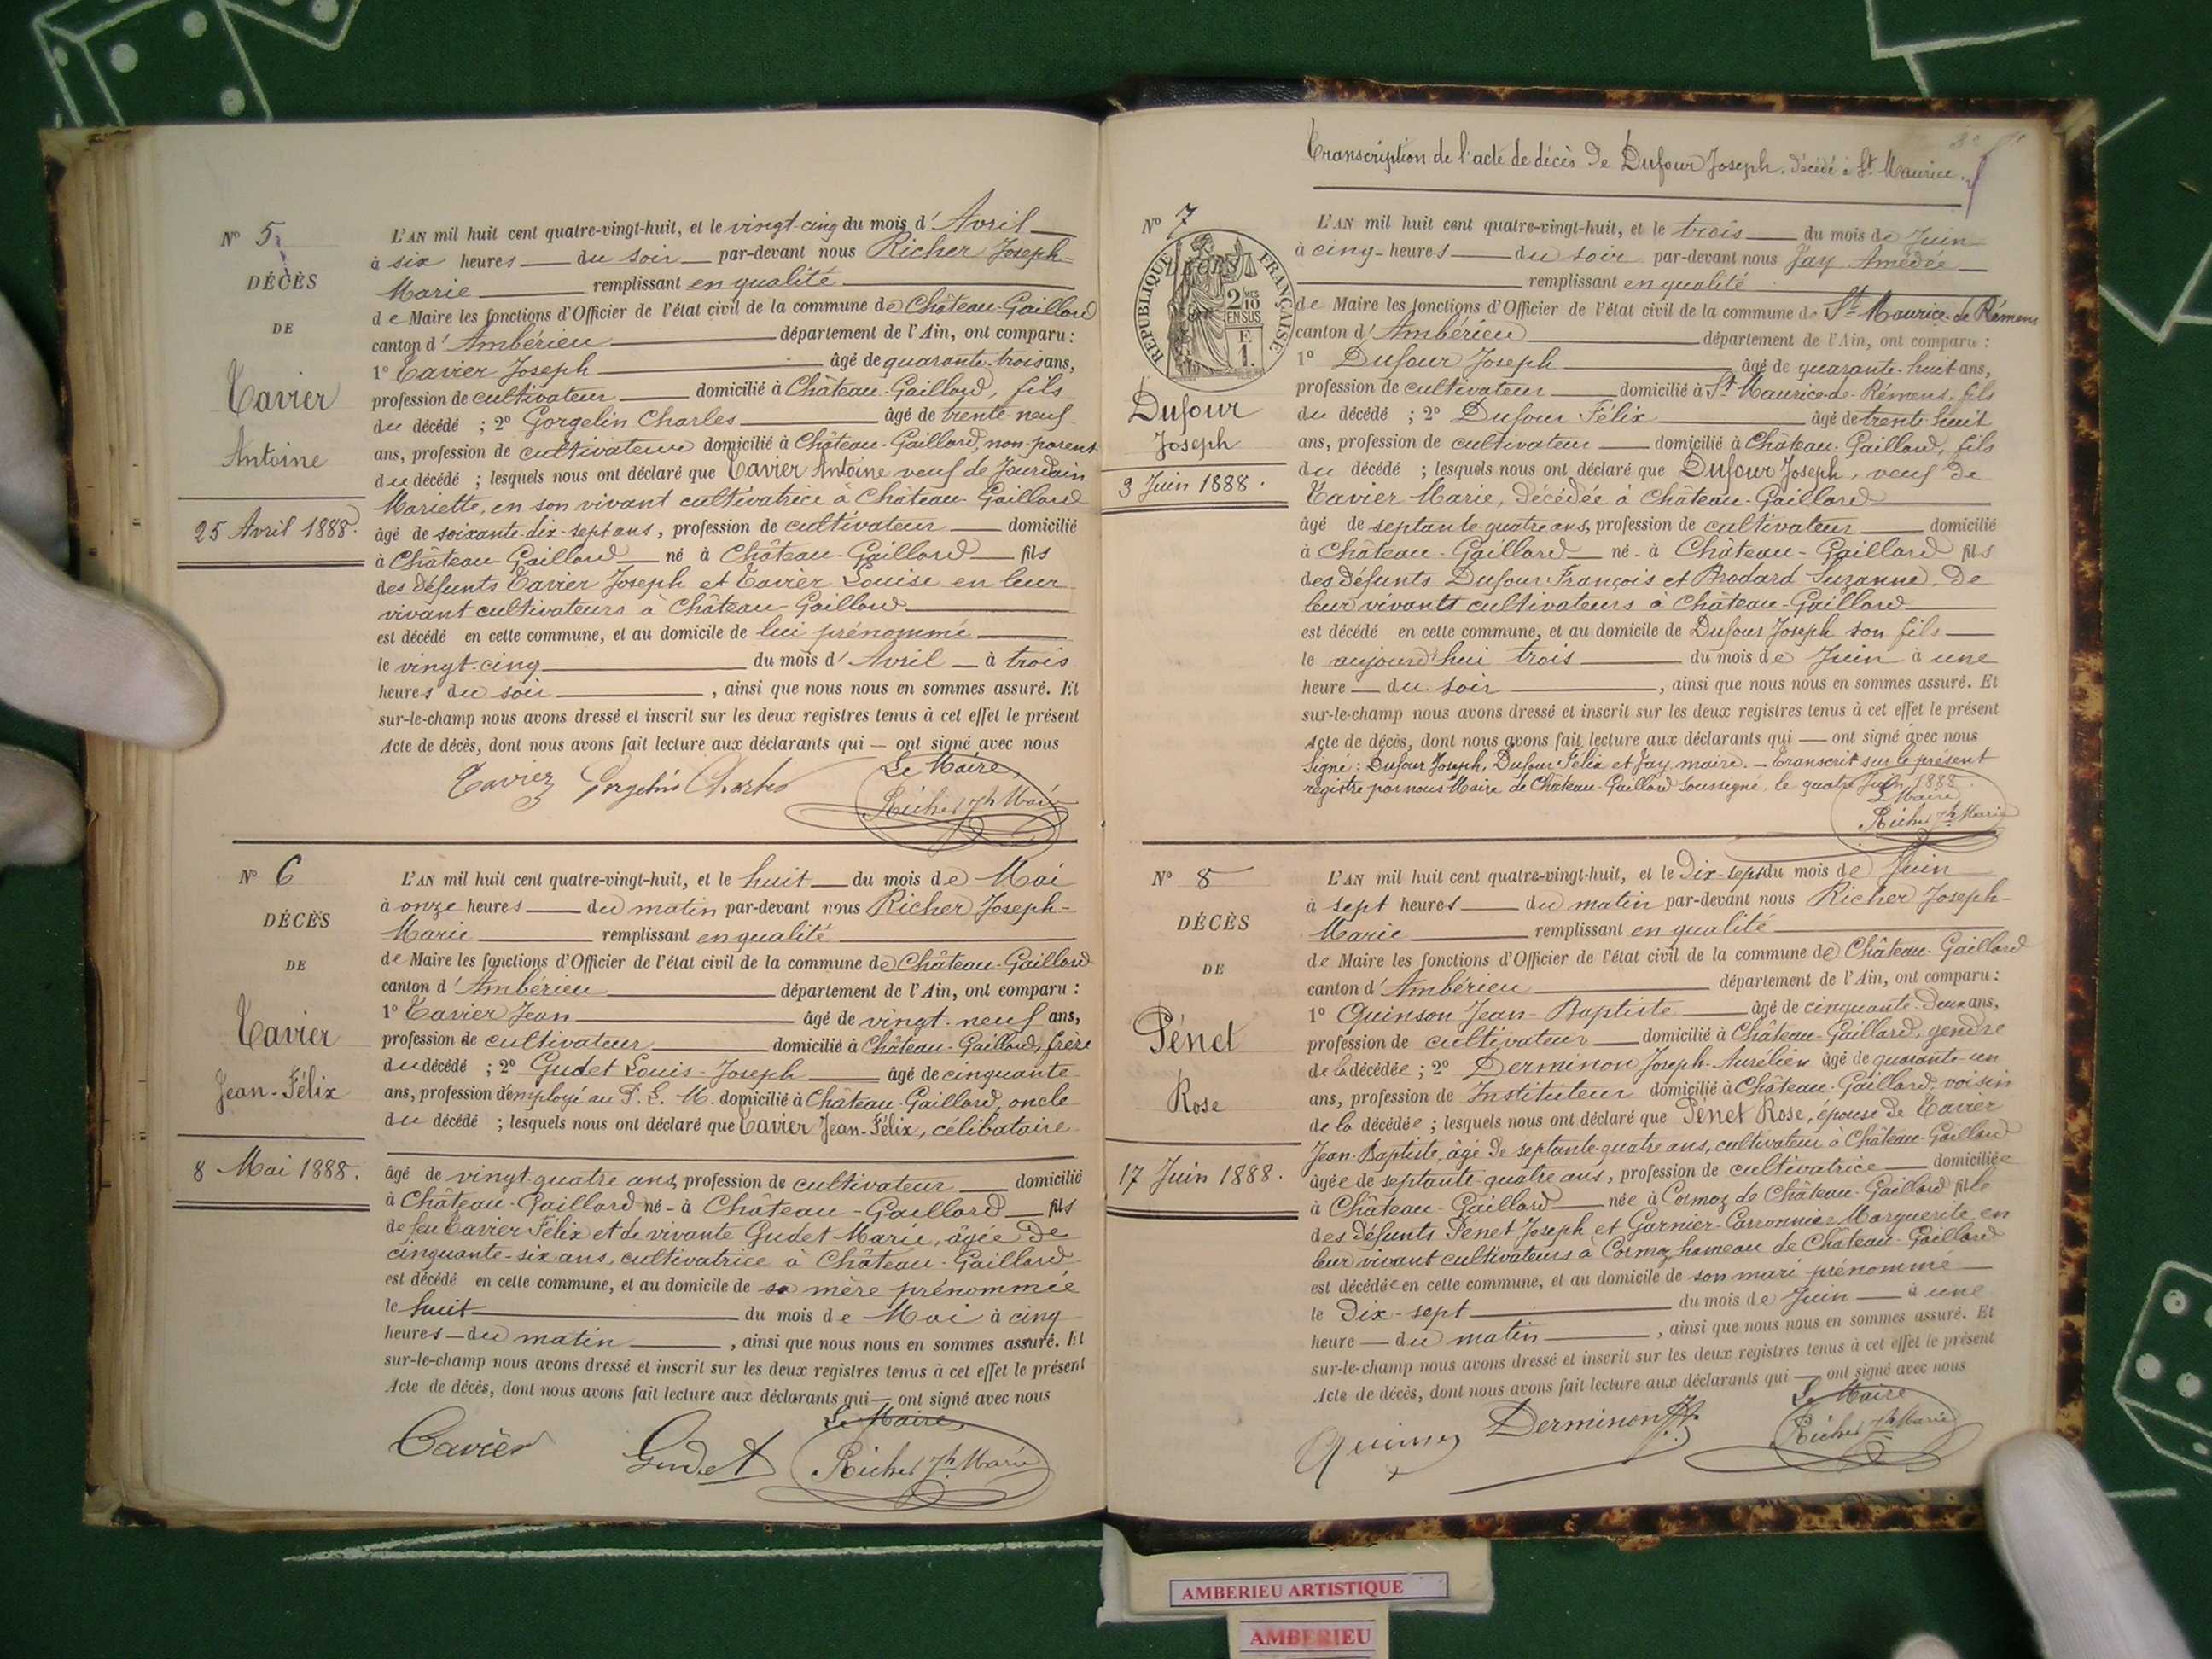 N° 5
DÉCÈS
DE
Tavier
Antoine
25 Avril 1888.
L'AN mil huit cent quatre-vingt-huit, et le vingt-cinq du mois d'Avril
à six heures du soir par-devant nous Richer Joseph-
Marie remplissant en qualité
de Maire les fonctions d'Officier de l'état civil de la commune de Château-Gaillard
canton d'Ambérieu département de l'Ain, ont comparu :
1° Tavier Joseph âgé de quarante-trois ans,
profession de cultivateur domicilié à Château-Gaillard, fils
du décédé ; 2° Gorgelin Charles âgé de trente-neuf
ans, profession de cultivateur domicilié à Château-Gaillard, non-parent
du décédé ; lesquels nous ont déclaré que Tavier Antoine veuf de Jourdain
Mariette, en son vivant cultivatrice à Château-Gaillard
âgé de soixante-dix-sept ans, profession de cultivateur domicilié
à Château-Gaillard né à Château-Gaillard fils
des défunts Tavier Joseph et Tavier Louise en leur
vivant cultivateurs à Château-Gaillard
est décédé en cette commune, et au domicile de lui prénommé
le vingt-cinq du mois d'Avril à trois
heures du soir, ainsi que nous nous en sommes assuré. Et
sur-le-champ nous avons dressé et inscrit sur les deux registres tenus à cet effet le présent
Acte de décès, dont nous avons fait lecture aux déclarants qui — ont signé avec nous
Tavier Gorgelin Charles Le Maire,
Richer Jh Marie
N° 6
DÉCÈS
DE
Tavier
Jean-Félix
8 Mai 1888.
L'AN mil huit cent quatre-vingt-huit, et le huit du mois de Mai
à onze heures du matin par-devant nous Richer Joseph-
Marie remplissant en qualité
de Maire les fonctions d'Officier de l'état civil de la commune de Château-Gaillard
canton d'Ambérieu département de l'Ain, ont comparu :
1° Tavier Jean âgé de vingt-neuf ans,
profession de cultivateur domicilié à Château-Gaillard, frère
du décédé ; 2° Gudet Louis-Joseph âgé de cinquante
ans, profession d'employé au P. L. M. domicilié à Château-Gaillard, oncle
du décédé ; lesquels nous ont déclaré que Tavier Jean-Félix, célibataire
âgé de vingt-quatre ans, profession de cultivateur domicilié
à Château-Gaillard né à Château-Gaillard fils
de feu Tavier Félix et de vivante Gudet Marie, âgée de
cinquante-six ans, cultivatrice à Château-Gaillard
est décédé en cette commune, et au domicile de sa mère prénommée
le huit du mois de Mai à cinq
heures du matin, ainsi que nous nous en sommes assuré. Et
sur-le-champ nous avons dressé et inscrit sur les deux registres tenus à cet effet le présent
Acte de décès, dont nous avons fait lecture aux déclarants qui — ont signé avec nous
Le Maire,
Tavier Gudet Richer Jh Marie
Transcription de l'acte de décès de Dufour Joseph. décédé à St Maurice.
N° 7
RÉPUBLIQUE FRANÇAISE
2/10 EN SUS
F.
1.
Dufour
Joseph
3 Juin 1888.
L'AN mil huit cent quatre-vingt-huit, et le trois du mois de Juin
à cinq heures du soir par-devant nous Jay Amédée
remplissant en qualité
de Maire les fonctions d'Officier de l'état civil de la commune de St Maurice-de-Rémens
canton d'Ambérieu département de l'Ain, ont comparu :
1° Dufour Joseph âgé de quarante-huit ans,
profession de cultivateur domicilié à St Maurice-de-Rémens, fils
du décédé ; 2° Dufour Félix âgé de trente-huit
ans, profession de cultivateur domicilié à Château-Gaillard, fils
du décédé ; lesquels nous ont déclaré que Dufour Joseph, veuf de
Tavier Marie, décédée à Château-Gaillard
âgé de septante-quatre ans, profession de cultivateur domicilié
à Château-Gaillard né à Château-Gaillard fils
des défunts Dufour François et Brodard Suzanne, de
leur vivants cultivateurs à Château-Gaillard
est décédé en cette commune, et au domicile de Dufour Joseph son fils
le aujourd'hui trois du mois de Juin à une
heure du soir, ainsi que nous nous en sommes assuré. Et
sur-le-champ nous avons dressé et inscrit sur les deux registres tenus à cet effet le présent
Acte de décès, dont nous avons fait lecture aux déclarants qui — ont signé avec nous
Signé : Dufour Joseph, Dufour Félix et Jay, maire. — Transcrit sur le présent
registre par nous Maire de Château-Gaillard soussigné, le quatre Juin 1888.
Le Maire
Richer Jh Marie
N° 8
DÉCÈS
DE
Pénet
Rose
17 Juin 1888.
L'AN mil huit cent quatre-vingt-huit, et le Dix-sept du mois de Juin
à sept heures du matin par-devant nous Richer Joseph-
Marie remplissant en qualité
de Maire les fonctions d'Officier de l'état civil de la commune de Château-Gaillard
canton d'Ambérieu département de l'Ain, ont comparu :
1° Quinson Jean-Baptiste âgé de cinquante-deux ans,
profession de cultivateur domicilié à Château-Gaillard, gendre
de la décédée ; 2° Derminon Joseph-Aurélien âgé de quarante-un
ans, profession de Instituteur domicilié à Château-Gaillard, voisin
de la décédée ; lesquels nous ont déclaré que Pénet Rose, épouse de Tavier
Jean-Baptiste, âgé de septante-quatre ans, cultivateur à Château-Gaillard
âgée de septante-quatre ans, profession de cultivatrice domiciliée
à Château-Gaillard née à Cormoz de Château-Gaillard fille
des défunts Pénet Joseph et Garnier-Carronnier Marguerite en
leur vivant cultivateurs à Cormoz hameau de Château-Gaillard
est décédée en cette commune, et au domicile de son mari prénommé
le Dix-sept du mois de Juin à une
heure du matin, ainsi que nous nous en sommes assuré. Et
sur-le-champ nous avons dressé et inscrit sur les deux registres tenus à cet effet le présent
Acte de décès, dont nous avons fait lecture aux déclarants qui — ont signé avec nous
Le Maire
Derminon Richer Jh Marie
AMBERIEU ARTISTIQUE
AMBERIEU